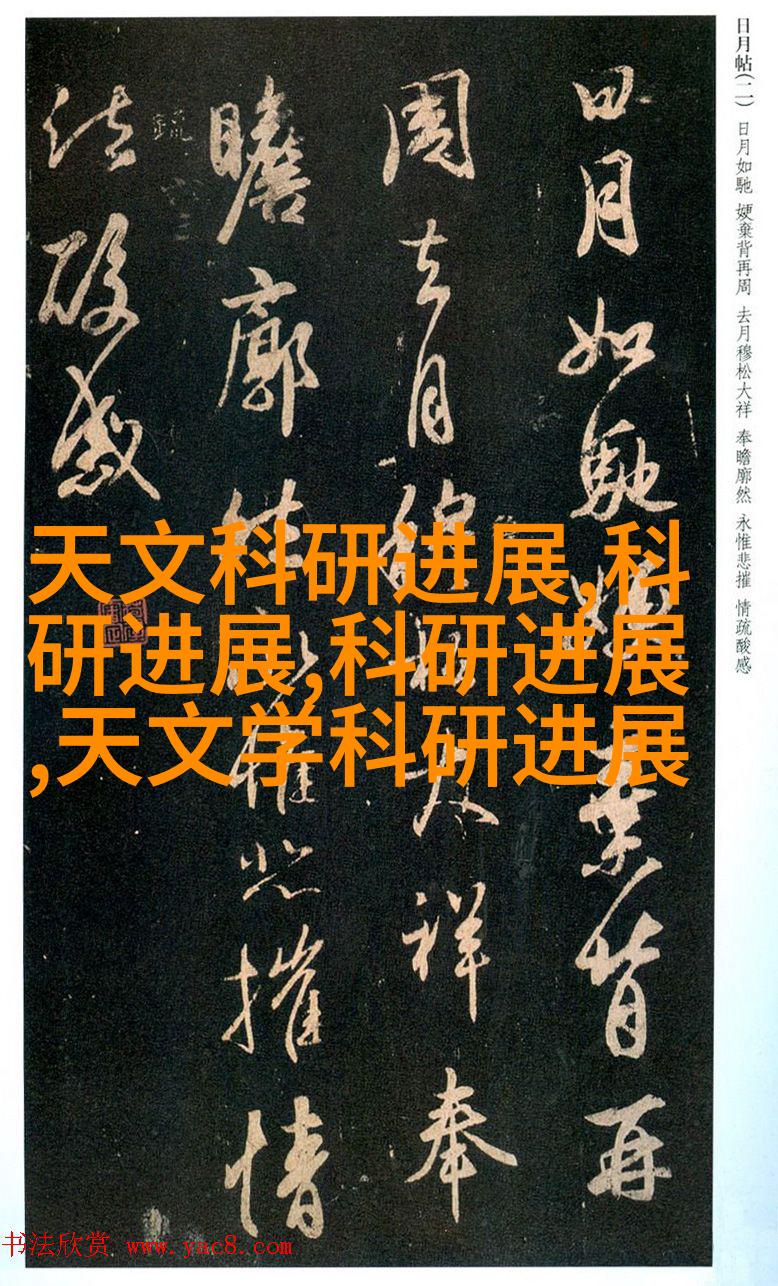 日月帖(二) 日月如馳 㛐棄背再周 去月穆松大祥 奉瞻廓然 永惟悲摧 情疏酸感
日月如馳㛐棄背再
周去月穆松大祥奉
瞻廓然永惟悲摧情
疏
法酸感
天文科研进展,科
研进展,科研进展
,天文学科研进展
书法欣赏 www.yac8.com